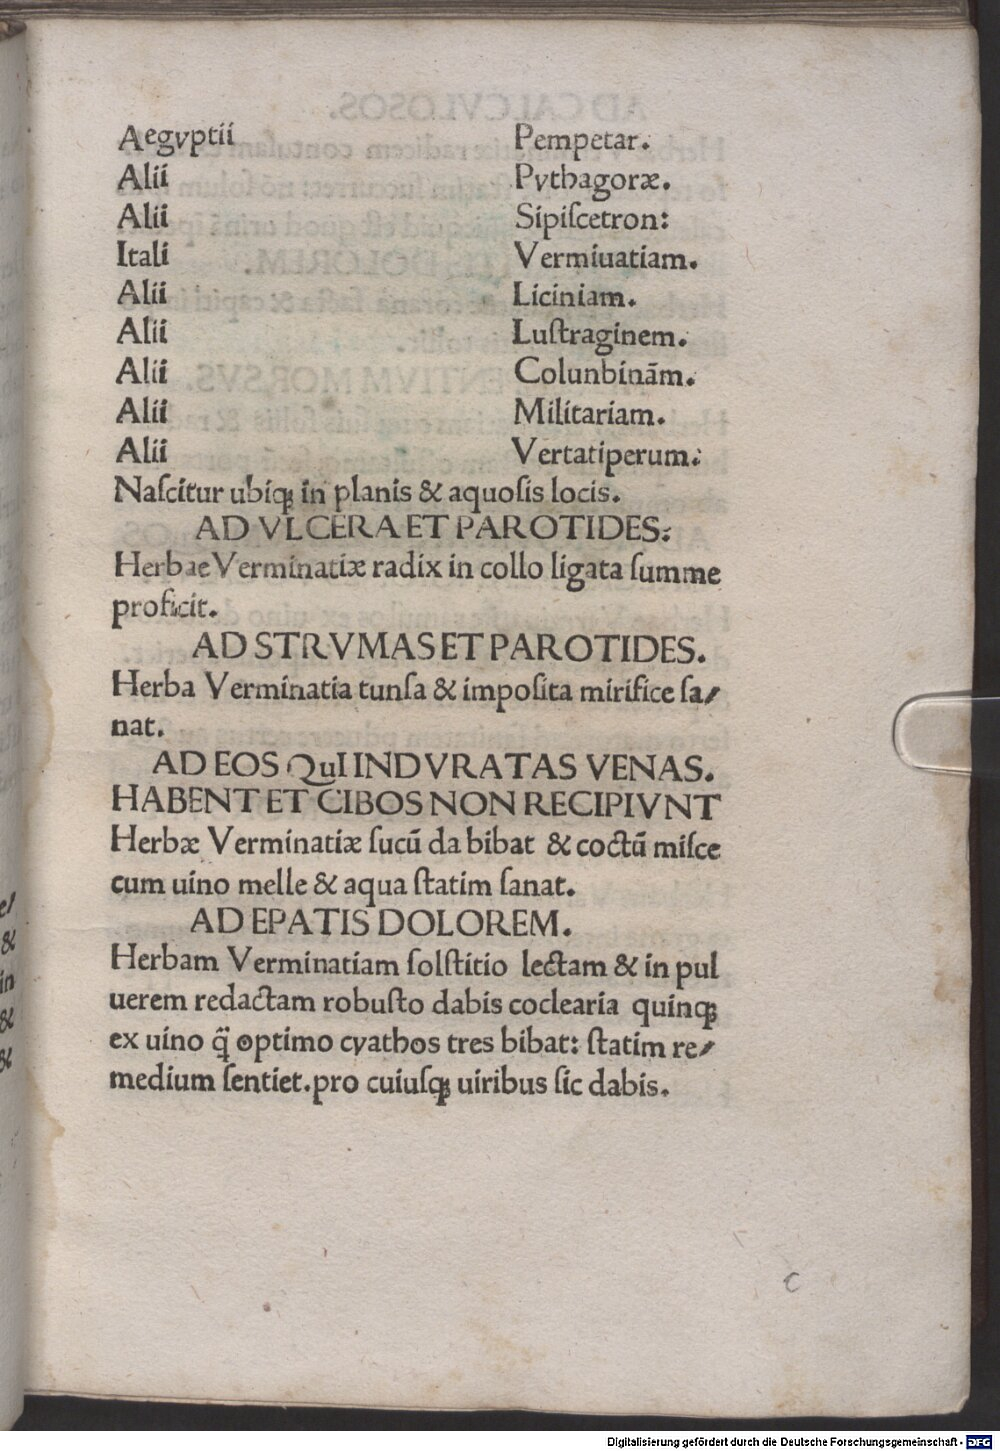 Aegyptii Pempetar.
Alii Pythagoræ.
Alii Sipiſcetron:
Itali Vermiuatiam.
Alii Liciniam.
Alii Luſtraginem.
Alii Colunbinām.
Alii Militariam.
Alii Vertatiperum:
Naſcitur ubiqꝫ in planis & aquoſis locis.
AD VLCERA ET PAROTIDES:
Herbae Verminatiæ radix in collo ligata ſumme
proficit.
AD STRVMAS ET PAROTIDES.
Herba Verminatia tunſa & impoſita mirifice ſa/
nat.
AD EOS QuI INDVRATAS VENAS.
HABENT ET CIBOS NON RECIPIVNT
Herbæ Verminatiæ ſucū da bibat & coctū miſce
cum uino melle & aqua ſtatim ſanat.
AD EPATIS DOLOREM.
Herbam Verminatiam ſolſtitio lectam & in pul
uerem redactam robuſto dabis coclearia quinqꝫ
ex uino q̄ optimo cyathos tres bibat: ſtatim re/
medium ſentiet. pro cuiuſqꝫ uiribus ſic dabis.
c
Digitalisierung gefördert durch die Deutsche Forschungsgemeinschaft - DFG